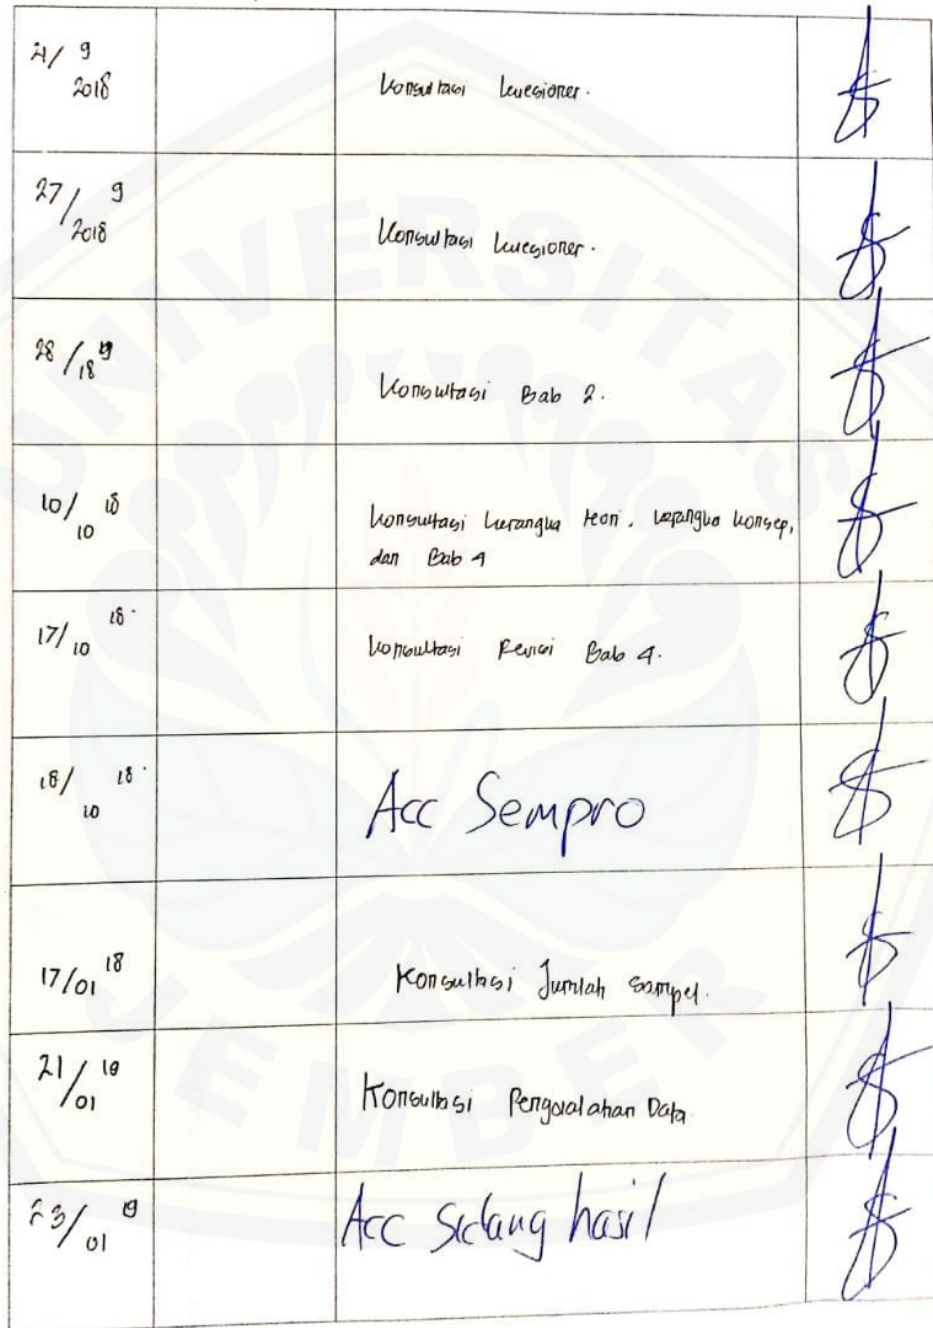 21/ 9
2018
Konsultasi kuesioner.
27/ 9
2018
Konsultasi kuesioner.
28/18 9
Konsultasi Bab 2.
10/10 18
Konsultasi kerangka teori, kerangka konsep,
dan Bab 4
17/10 18.
Konsultasi Revisi Bab 4.
18/10 18.
Acc Sempro
17/01 18
Konsultasi Jumlah sampel.
21/01 19
Konsultasi Pengoalahan Data
23/01 19
Acc Sidang hasil
UNIVERSITAS
JEMBER